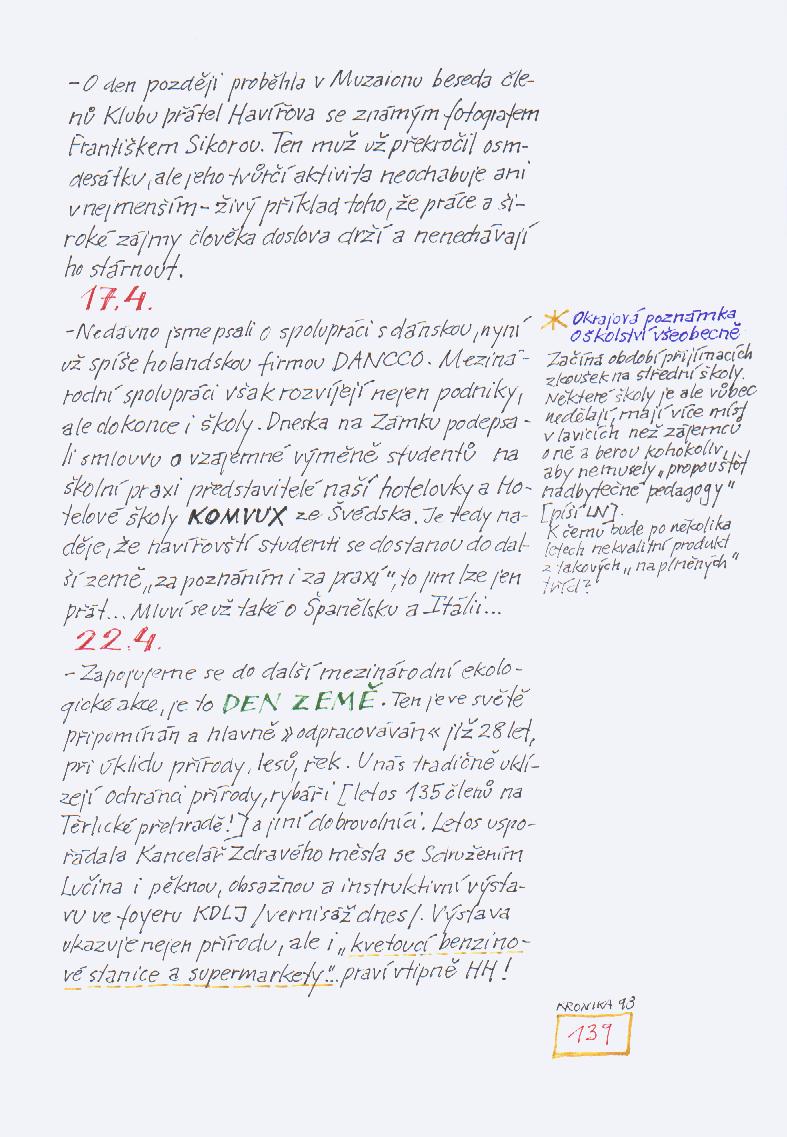 - O den později proběhla v Muzaionu beseda čle-
nů Klubu přátel Havířova se známým fotografem
Františkem Sikorou. Ten muž už překročil osm-
desátku, ale jeho tvůrčí aktivita neochabuje ani
v nejmenším - živý příklad toho, že práce a ši-
roké zájmy člověka doslova drží a nenechávají
ho stárnout.
17.4.
- Nedávno jsme psali o spolupráci s dánskou, nyní
už spíše holandskou firmou DANCCO. Meziná-
rodní spolupráci však rozvíjejí nejen podniky,
ale dokonce i školy. Dneska na Zámku podepsa-
li smlouvu o vzájemné výměně studentů na
školní praxi představitelé naší hotelovky a Ho-
telové školy KOMVUX ze Švédska. Je tedy na-
děje, že havířovští studenti se dostanou do dal-
ší země „za poznáním i za praxí", to jim lze jen
přát... Mluví se už také o Španělsku a Itálii...
22.4.
- Zapojujeme se do další mezinárodní ekolo-
gické akce, je to DEN ZEMĚ. Ten je ve světě
připomínán a hlavně »odpracováván« již 28 let,
při úklidu přírody, lesů, řek. U nás tradičně uklí-
zejí ochránci přírody, rybáři [letos 135 členů na
Těrlické přehradě!] a jiní dobrovolníci. Letos uspo-
řádala Kancelář Zdravého města se Sdružením
Lučina i pěknou, obsažnou a instruktivní výsta-
vu ve foyeru KDLJ /vernisáž dnes/. Výstava
ukazuje nejen přírodu, ale i „kvetoucí benzino-
vé stanice a supermarkety"... praví vtipně HH!
* Okrajová poznámka
o školství všeobecně
Začíná období přijímacích
zkoušek na střední školy.
Některé školy je ale vůbec
nedělají, mají více míst
v lavicích než zájemců
o ně a berou kohokoliv,
aby nemusely „propouštět
nadbytečné pedagogy"
[píší LN].
K čemu bude po několika
letech nekvalitní produkt
z takových „naplněných"
tříd?
KRONIKA 98
139